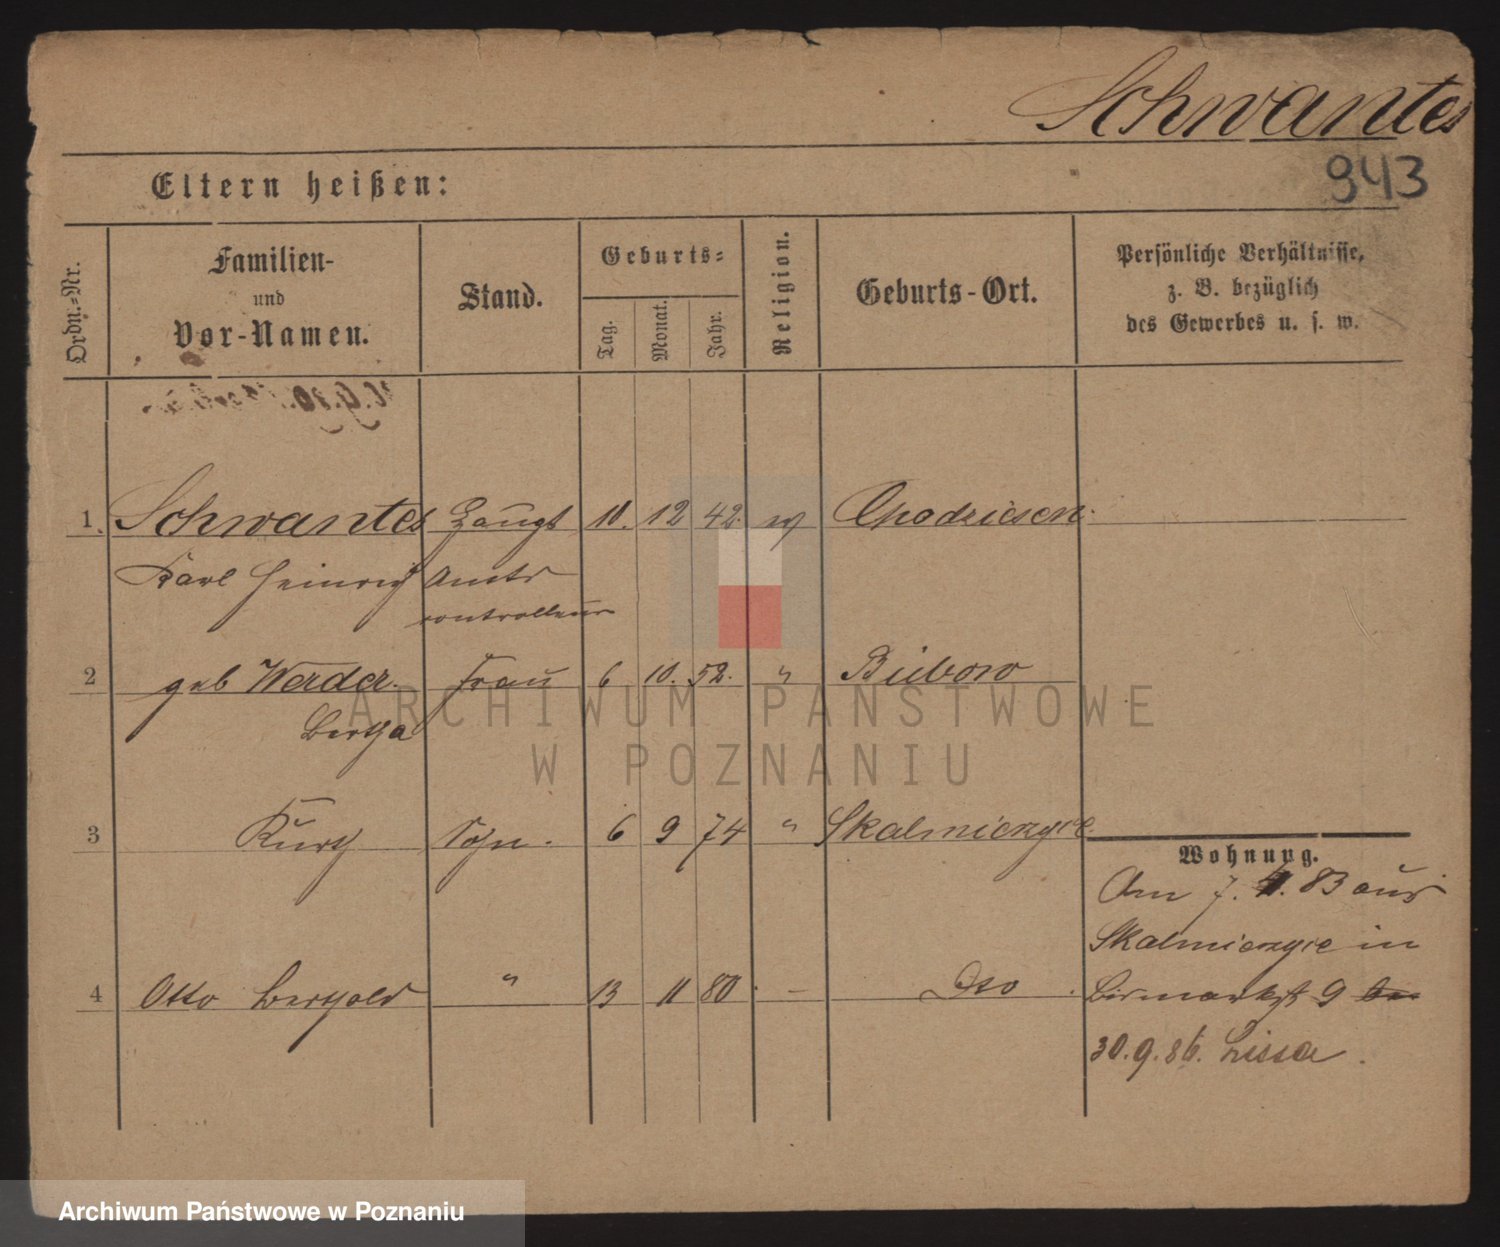 Schwantes
943
Eltern heißen:
Ordn.-Nr.
Familien-
und
Vor-Namen.
Stand.
Geburts-
Tag.
Monat.
Jahr.
Religion.
Geburts-Ort.
Persönliche Verhältnisse,
z. B. bezüglich
des Gewerbes u. s. w.
1. Schwantes 10. 12 42. Chodziesen
Karl Heinrich Amts
controlleur
2 geb Werder. Frau 6 10. 52. "
Bertha
3 Kurt Sohn. 6 9 74 " Skalmierzyce
Wohnung.
Am 7. 83 aus
Skalmierzyce in
4 Otto Berthold " 13 11 80 - Dto Bismarckst 9
30.9.86. Lissa.
ARCHIWUM PAŃSTWOWE
W POZNANIU
Archiwum Państwowe w Poznaniu